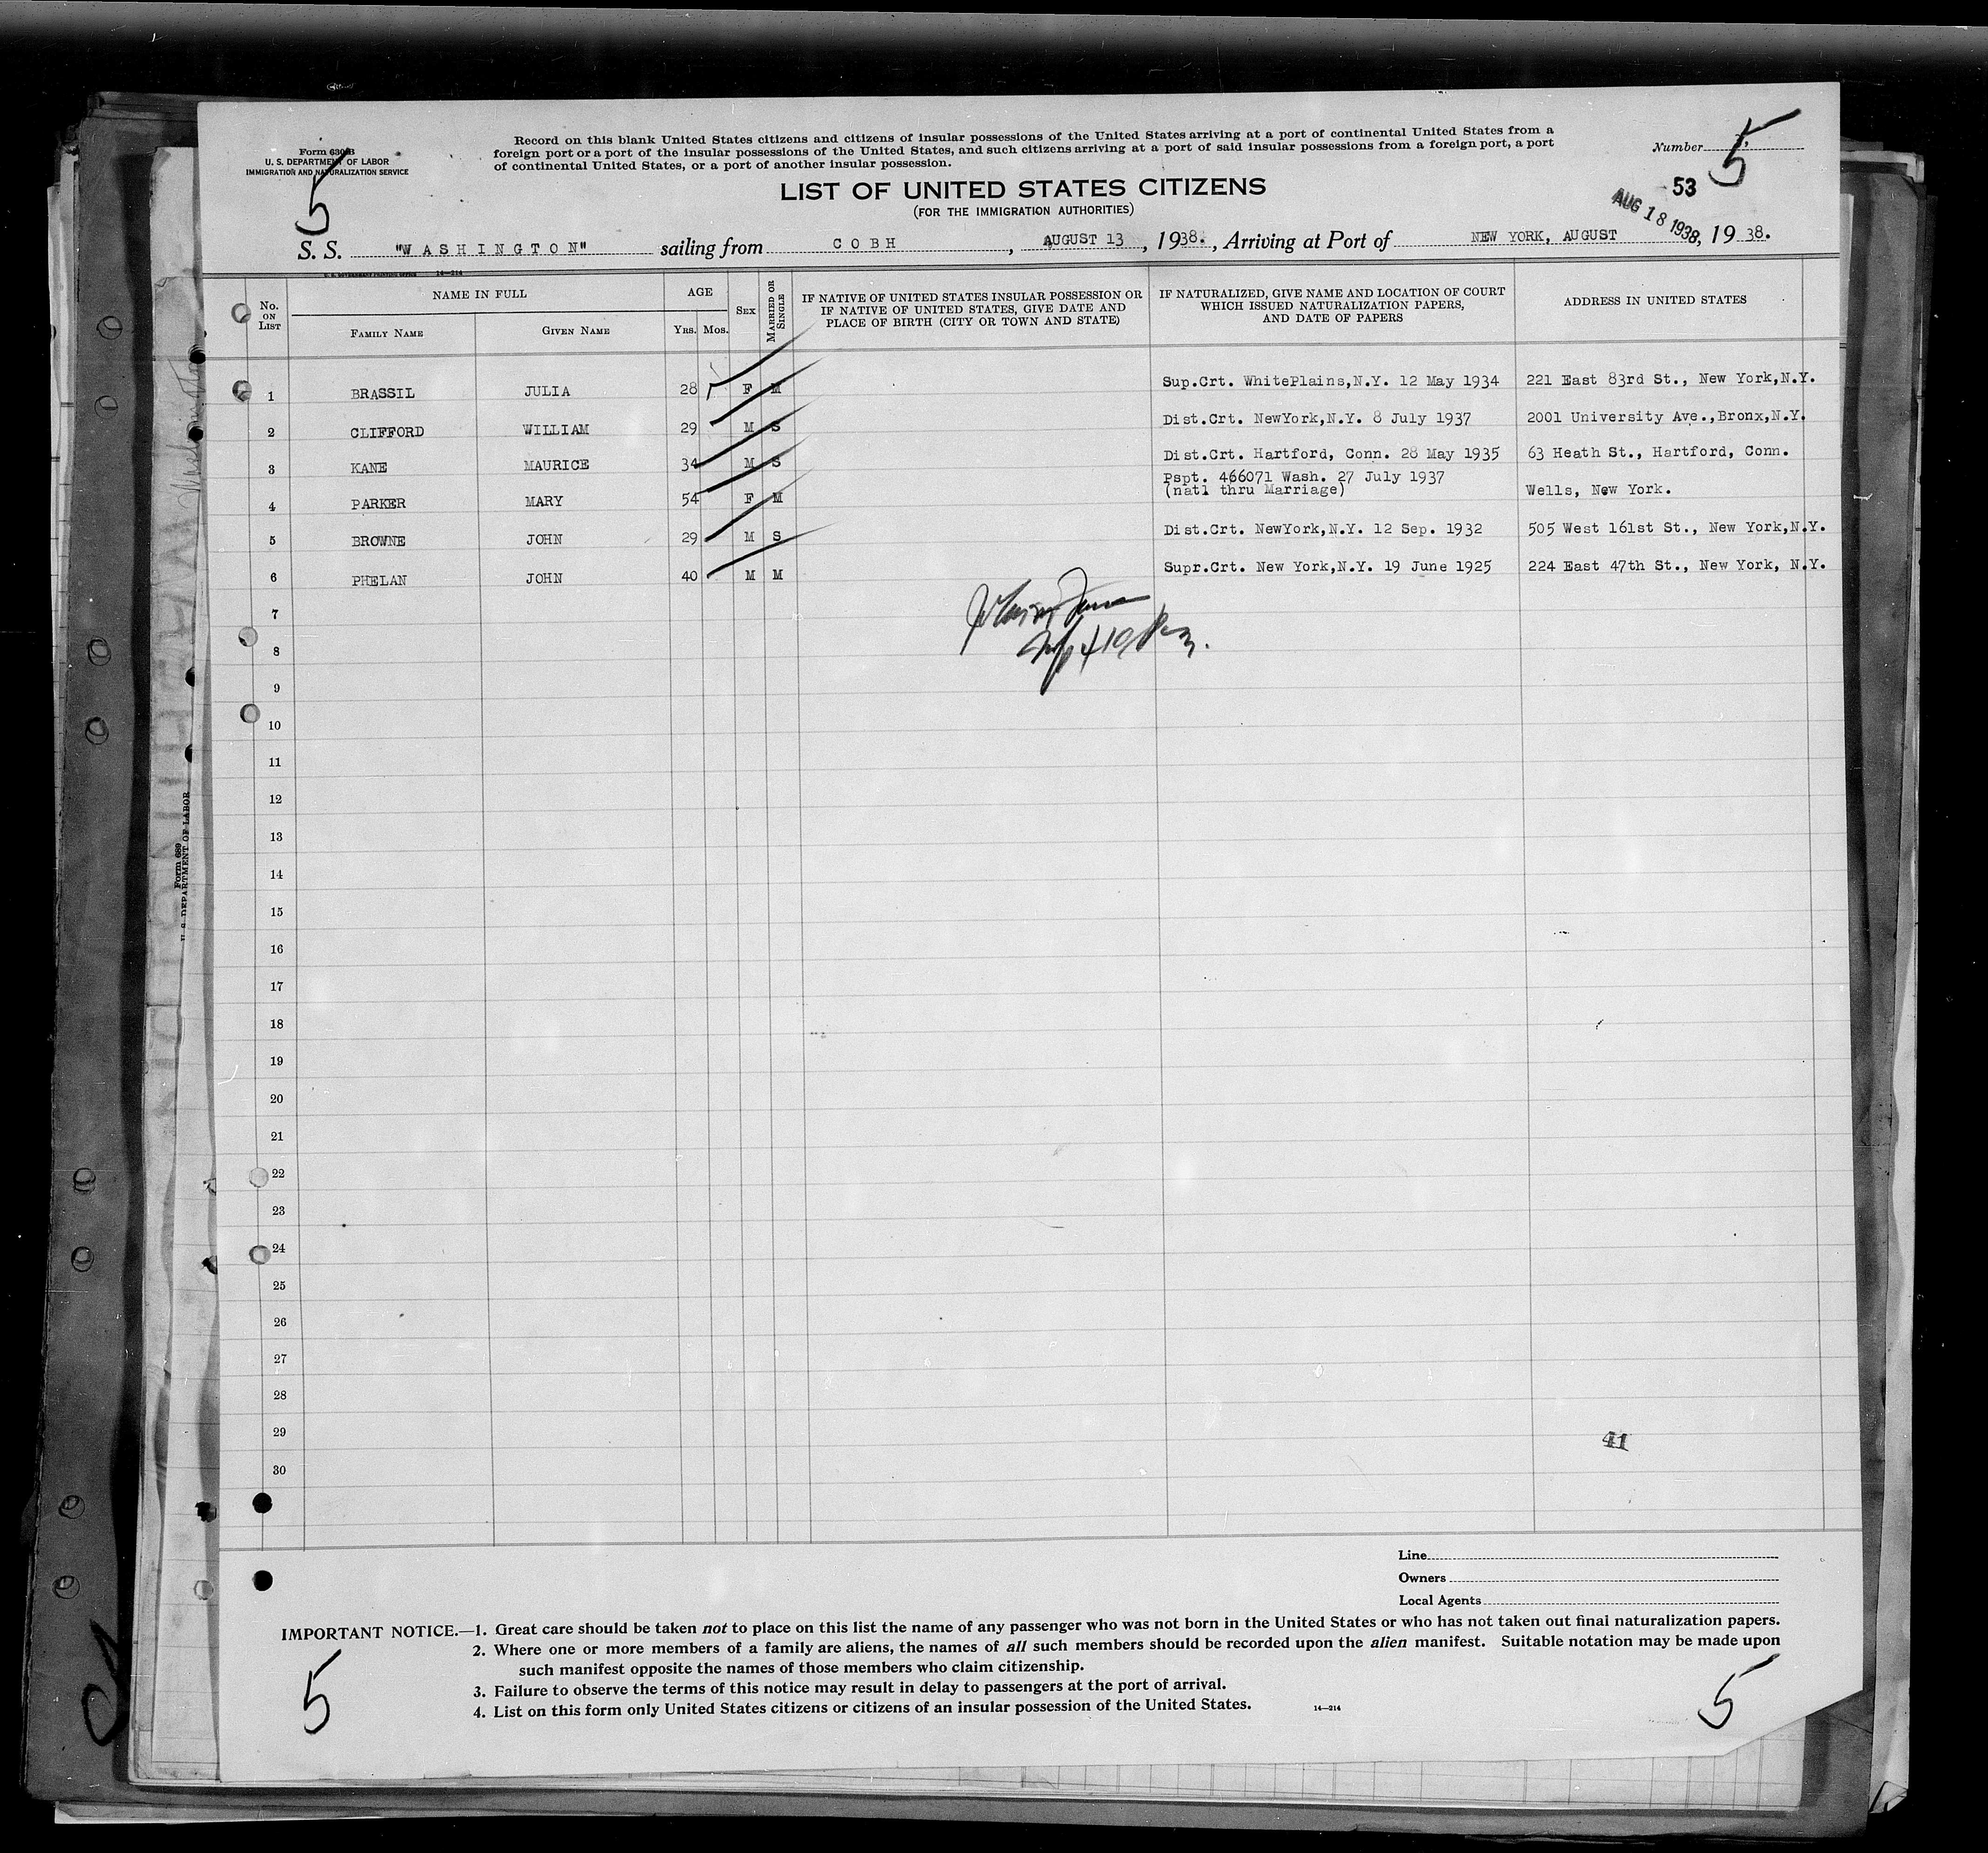 Form 630-B
U. S. DEPARTMENT OF LABOR
IMMIGRATION AND NATURALIZATION SERVICE
5
Record on this blank United States citizens and citizens of insular possessions of the United States arriving at a port of continental United States from a
foreign port or a port of the insular possessions of the United States, and such citizens arriving at a port of said insular possessions from a foreign port, a port
of continental United States, or a port of another insular possession.
Number 5
53
LIST OF UNITED STATES CITIZENS
(FOR THE IMMIGRATION AUTHORITIES)
AUG 18 1938
S. S. "WASHINGTON" sailing from COBH, AUGUST 13, 1938., Arriving at Port of NEW YORK, AUGUST, 1938.
U. S. GOVERNMENT PRINTING OFFICE 14—214
No. ON LIST
NAME IN FULL
FAMILY NAME GIVEN NAME
AGE
YRS. MOS.
SEX
MARRIED OR SINGLE
IF NATIVE OF UNITED STATES INSULAR POSSESSION OR
IF NATIVE OF UNITED STATES, GIVE DATE AND
PLACE OF BIRTH (CITY OR TOWN AND STATE)
IF NATURALIZED, GIVE NAME AND LOCATION OF COURT
WHICH ISSUED NATURALIZATION PAPERS,
AND DATE OF PAPERS
ADDRESS IN UNITED STATES
1 BRASSIL JULIA 28 F M Sup.Crt. WhitePlains,N.Y. 12 May 1934 221 East 83rd St., New York,N.Y.
2 CLIFFORD WILLIAM 29 M S Dist.Crt. NewYork,N.Y. 8 July 1937 2001 University Ave.,Bronx,N.Y.
3 KANE MAURICE 34 M S Dist.Crt. Hartford, Conn. 28 May 1935 63 Heath St., Hartford, Conn.
4 PARKER MARY 54 F M Pspt. 466071 Wash. 27 July 1937
(natl thru Marriage) Wells, New York.
5 BROWNE JOHN 29 M S Dist.Crt. NewYork,N.Y. 12 Sep. 1932 505 West 161st St., New York,N.Y.
6 PHELAN JOHN 40 M M Supr.Crt. New York,N.Y. 19 June 1925 224 East 47th St., New York, N.Y.
7
8
9
10
11
12
13
14
15
16
17
18
19
20
21
22
23
24
25
26
27
28
29
30
41
Line
Owners
Local Agents
IMPORTANT NOTICE.—1. Great care should be taken not to place on this list the name of any passenger who was not born in the United States or who has not taken out final naturalization papers.
2. Where one or more members of a family are aliens, the names of all such members should be recorded upon the alien manifest. Suitable notation may be made upon
such manifest opposite the names of those members who claim citizenship.
3. Failure to observe the terms of this notice may result in delay to passengers at the port of arrival.
4. List on this form only United States citizens or citizens of an insular possession of the United States. 14—214
5
5
Form 689
U. S. DEPARTMENT OF LABOR